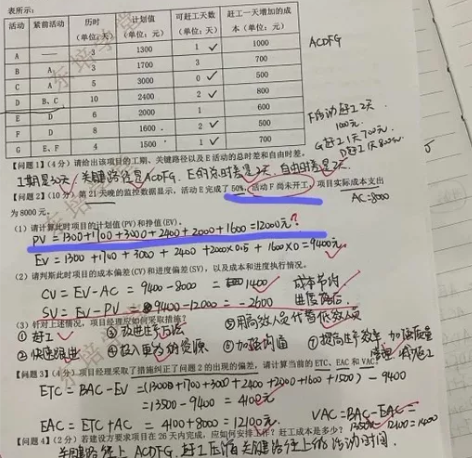 表所示：
活动 紧前活动 历时（单位：天） 计划值（单位：元） 可赶工天数（单位：天） 赶工一天增加的成本（单位：元）
A —— 3 1300 1 ✓ 1000
B A 3 1700 3 700
C A 5 3000 0 ✓ 500
D B、C 10 2400 2 ✓ 800
E D 6 2000 1 600
F D 8 1600 2 ✓ 500
G E、F 4 1500 1 ✓ 700
ACDFG
F活动赶工2天
G赶工1天700元
D赶工1天800元
【问题1】（4分）请给出该项目的工期、关键路径以及E活动的总时差和自由时差。
工期是30天 关键路径是ACDFG. E的总时差是2天. 自由时差是2天.
【问题2】（10分）第21天晚的监控数据显示，活动E完成了50%，活动F尚未开工，项目实际成本支出
为8000元。
AC=8000
（1）请计算此时项目的计划值(PV)和挣值(EV)。
PV=1300+1700+3000+2400+2000+1600=12000元?
EV=1300+1700+3000+2400+2000×0.5+1600×0=9400元
（2）请判断此时项目的成本偏差(CV)和进度偏差(SV)，以及成本和进度执行情况。
CV=EV-AC=9400-8000=1400 成本节约
SV=EV-PV=9400-12000=-2600 进度落后
（3）针对上述情况，项目经理应如何采取措施？
① 赶工 ③改进生产方法 ⑤用高效人员代替低效人员
②快速跟进 ④投入更多的资源 ⑥加强沟通 ⑦提高生产效率 加强质量管理
【问题3】（4分）项目经理采取了措施纠正了问题2的出现的偏差，请计算当前的ETC、EAC和VAC
ETC=BAC-EV=(1300+1700+3000+2400+2000+1600+1500)-9400
=13500-9400=4100元
EAC=ETC+AC=4100+8000=12100元. VAC=BAC-EAC=
【问题4】（2分）若建设方要求项目在26天内完成，应如何安排工作？赶工成本是多少？
关键路径上ACDFG.赶工压缩关键路径上的活动时间.